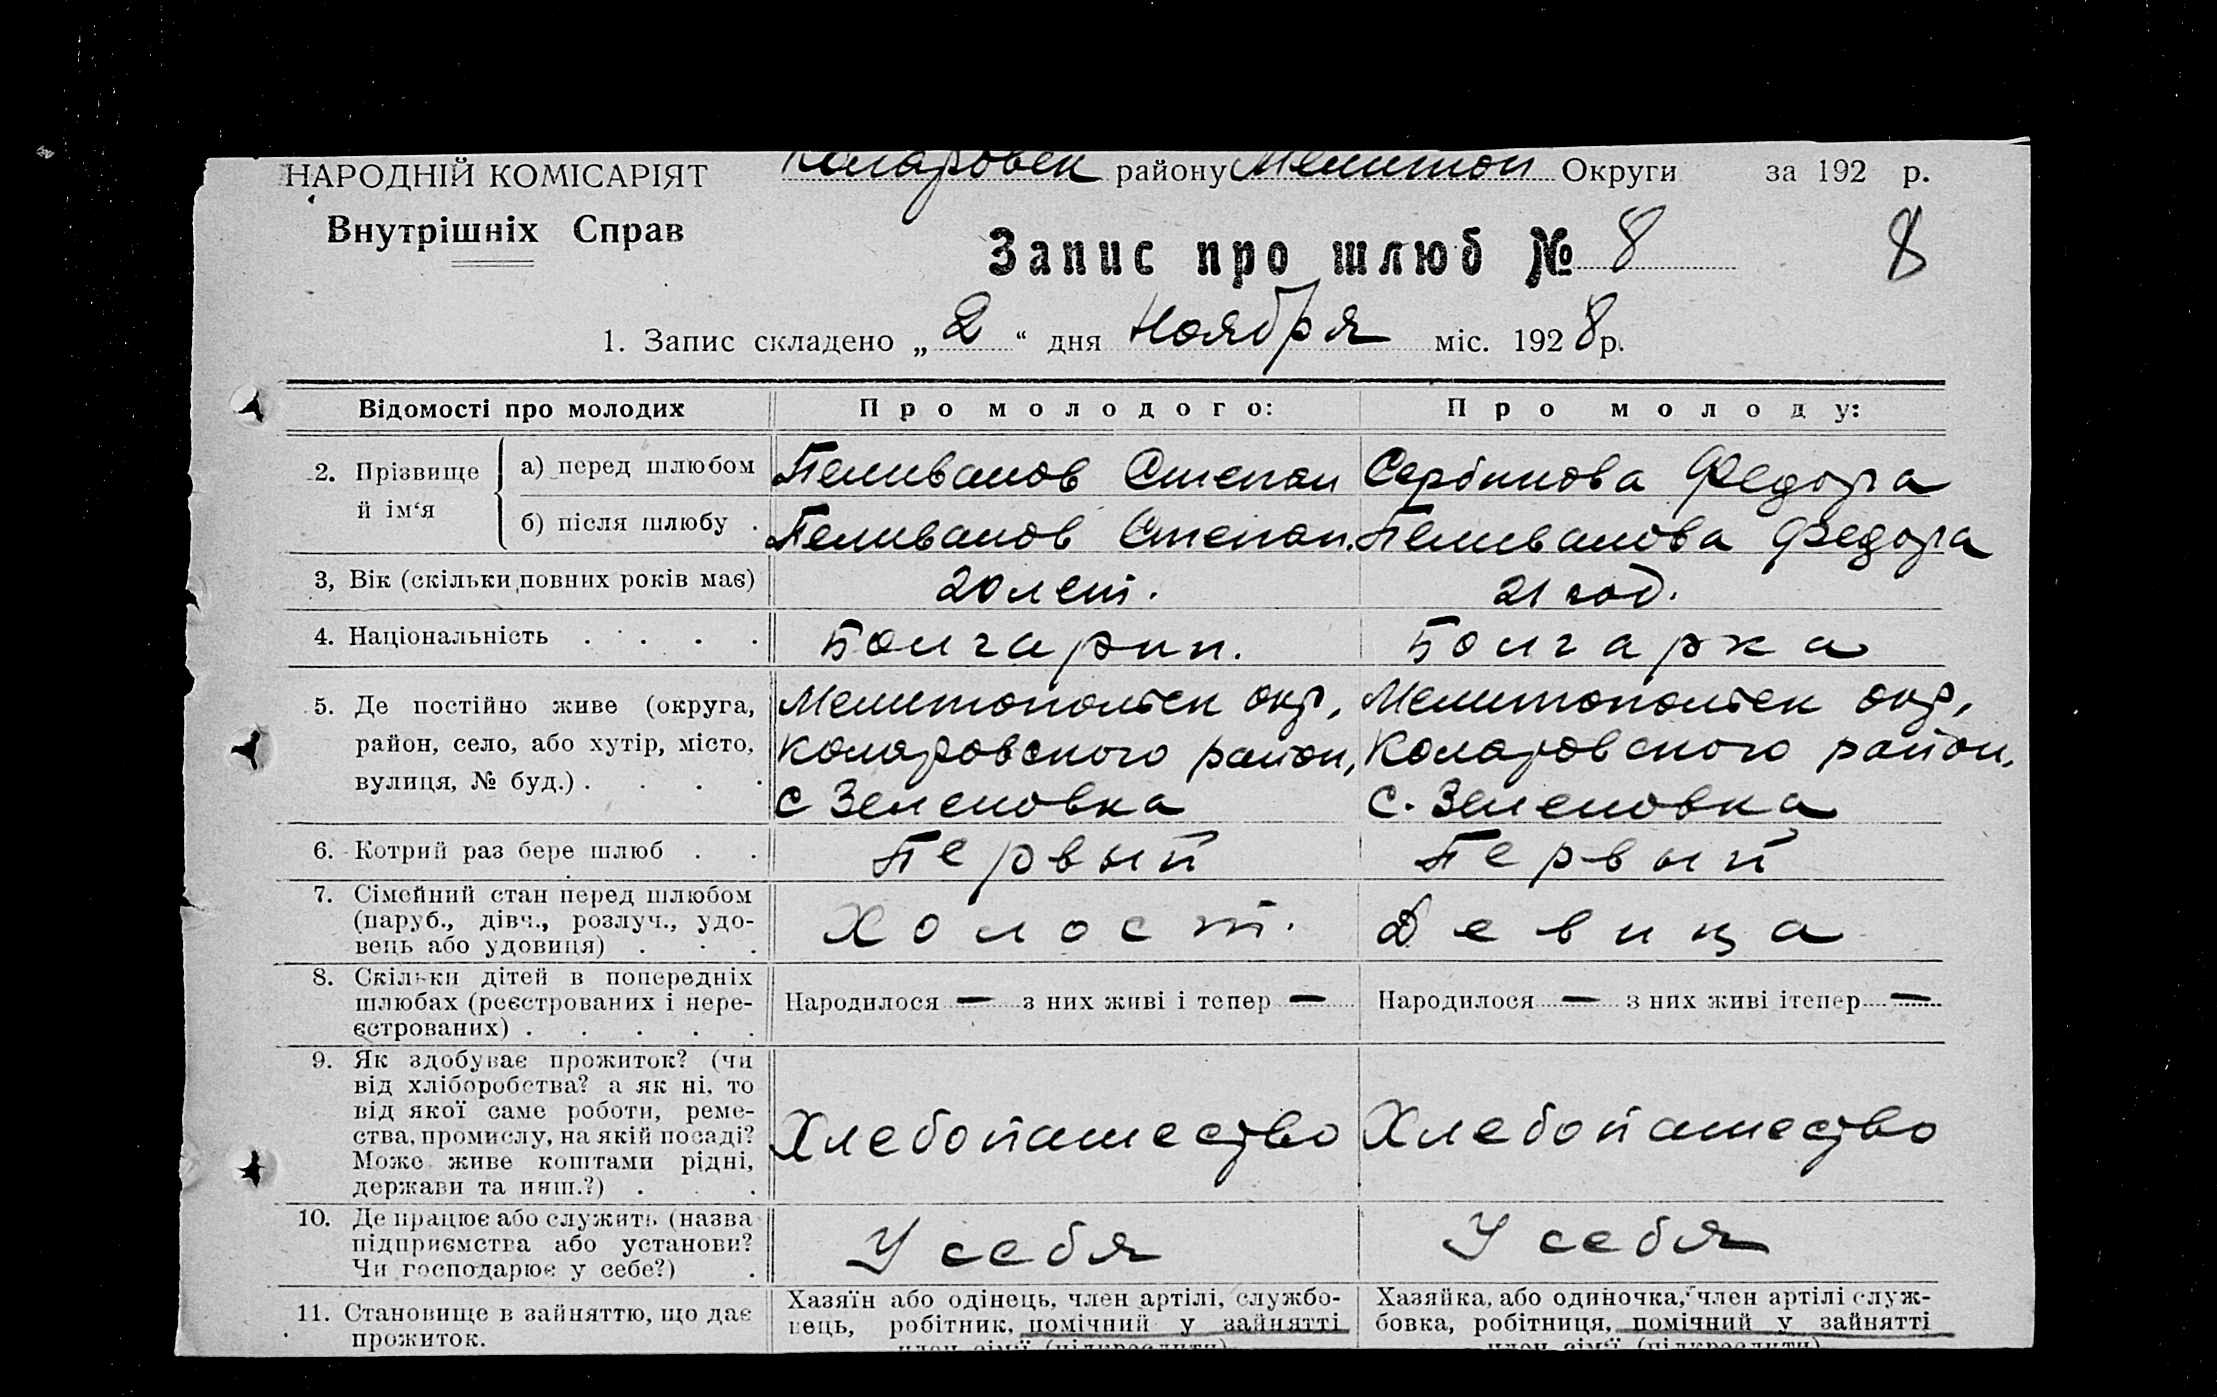 НАРОДНІЙ КОМІСАРІЯТ
Коларовск району Мелитоп Округи за 192 р.
Внутрішніх Справ
Запис про шлюб № 8
8
1. Запис складено „ 2 “ дня Ноября міс. 1928 р.
Відомості про молодих Про молодого: Про молоду:
2. Прізвище й ім‘я
а) перед шлюбом Пеливанов Степан Сербинова Федора
б) після шлюбу . Пеливанов Степан. Пеливанова Федора
3, Вік (скільки повних років має) 20 лет. 21 год.
4. Національність . . . . Болгарин. Болгарка
5. Де постійно живе (округа, Мелитопольск окр, Мелитопольск окр,
район, село, або хутір, місто, Коларовского район, Коларовского район,
вулиця, № буд.) . . . . с Зеленовка с. Зеленовка
6. Котрий раз бере шлюб . . Первый Первый
7. Сімейний стан перед шлюбом
(паруб., дівч., розлуч., удо- Холост. Девица
вець або удовиця) . . .
8. Скільки дітей в попередніх
шлюбах (реєстрованих і нере- Народилося — з них живі і тепер — Народилося — з них живі ітепер —
єстрованих) . . . . .
9. Як здобуває прожиток? (чи
від хліборобства? а як ні, то
від якої саме роботи, реме-
ства, промислу, на якій посаді? Хлебопашество Хлебопашество
Може живе коштами рідні,
держави та инш.?) . . .
10. Де працює або служить (назва
підприємства або установи? У себя У себя
Чи господарює у себе?) .
11. Становище в зайняттю, що дає Хазяїн або одінець, член артілі, службо- Хазяйка, або одиночка, член артілі служ-
прожиток. вець, робітник, помічний у зайнятті бовка, робітниця, помічний у зайнятті
член сім‘ї (підкреслити) член сім‘ї (підкреслити)